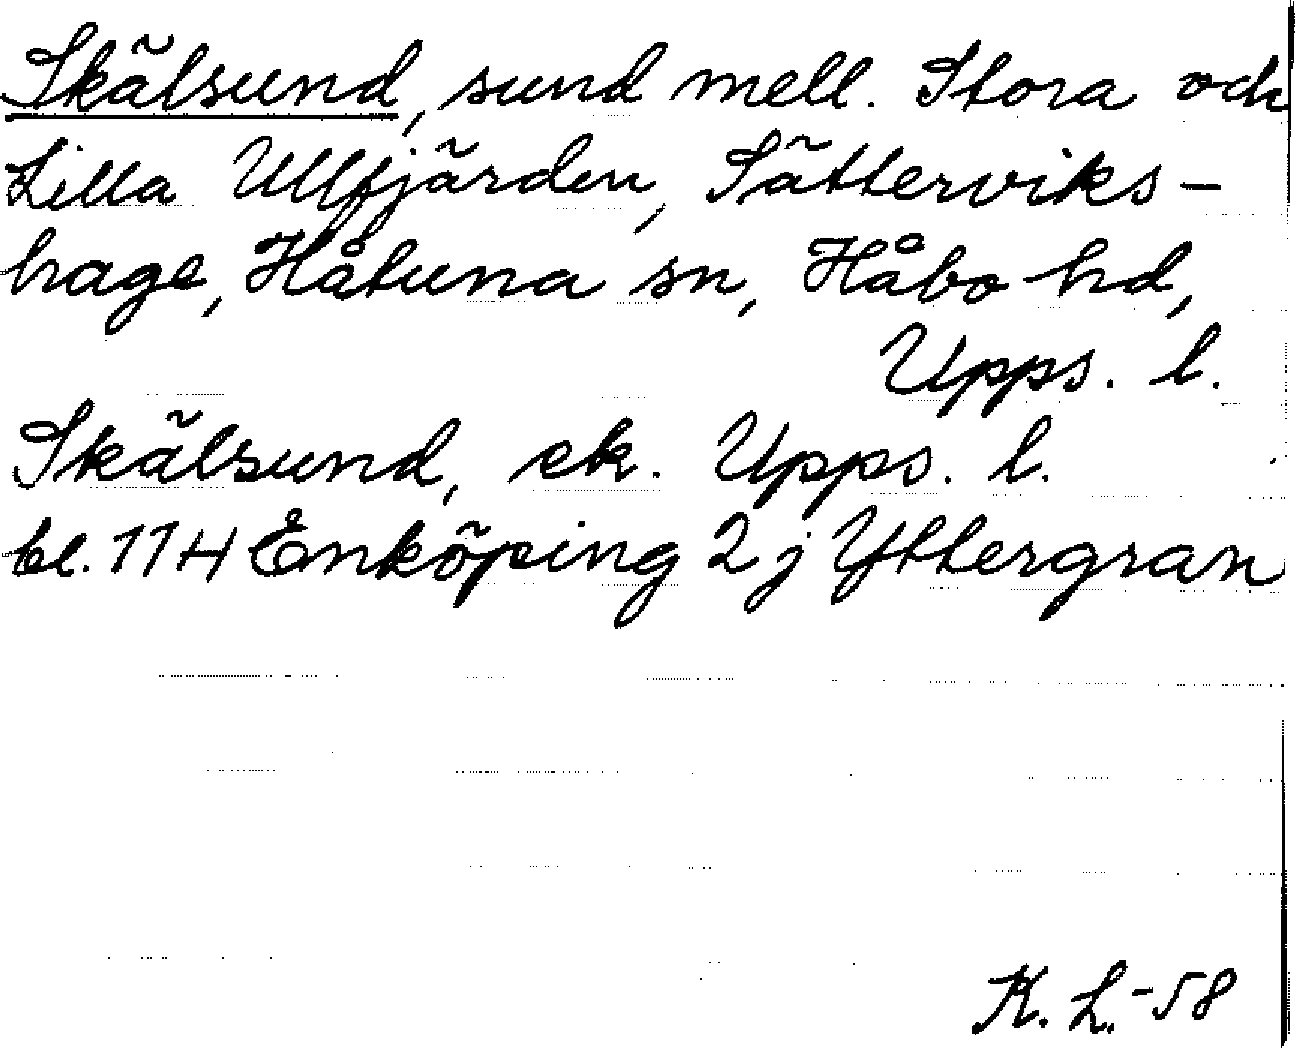 Skälsund, sund mell. Stora och
Lilla Ullfjärden, Sätterviks-
hage, Håtuna sn, Håbo hd,
Upps. l.
Skälsund, ek. Upps. l.
bl. 11H Enköping 2j Yttergran
K. L. -58